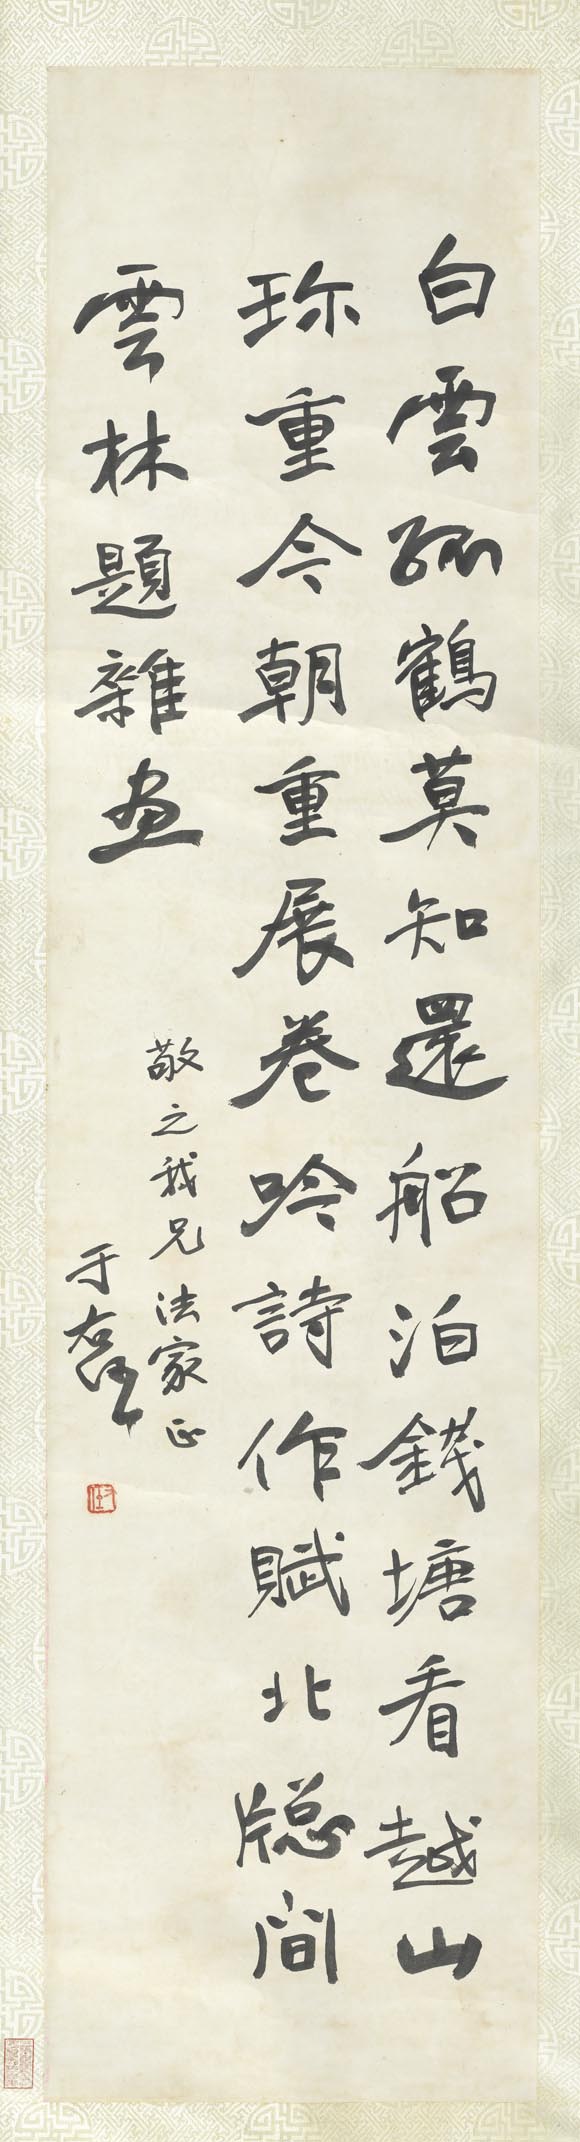 白雲孤鶴莫知還船泊錢塘看越山
珎重今朝重展卷吟詩作賦北牎間
雲林題雜畫
敬之我兄法家正
于右任